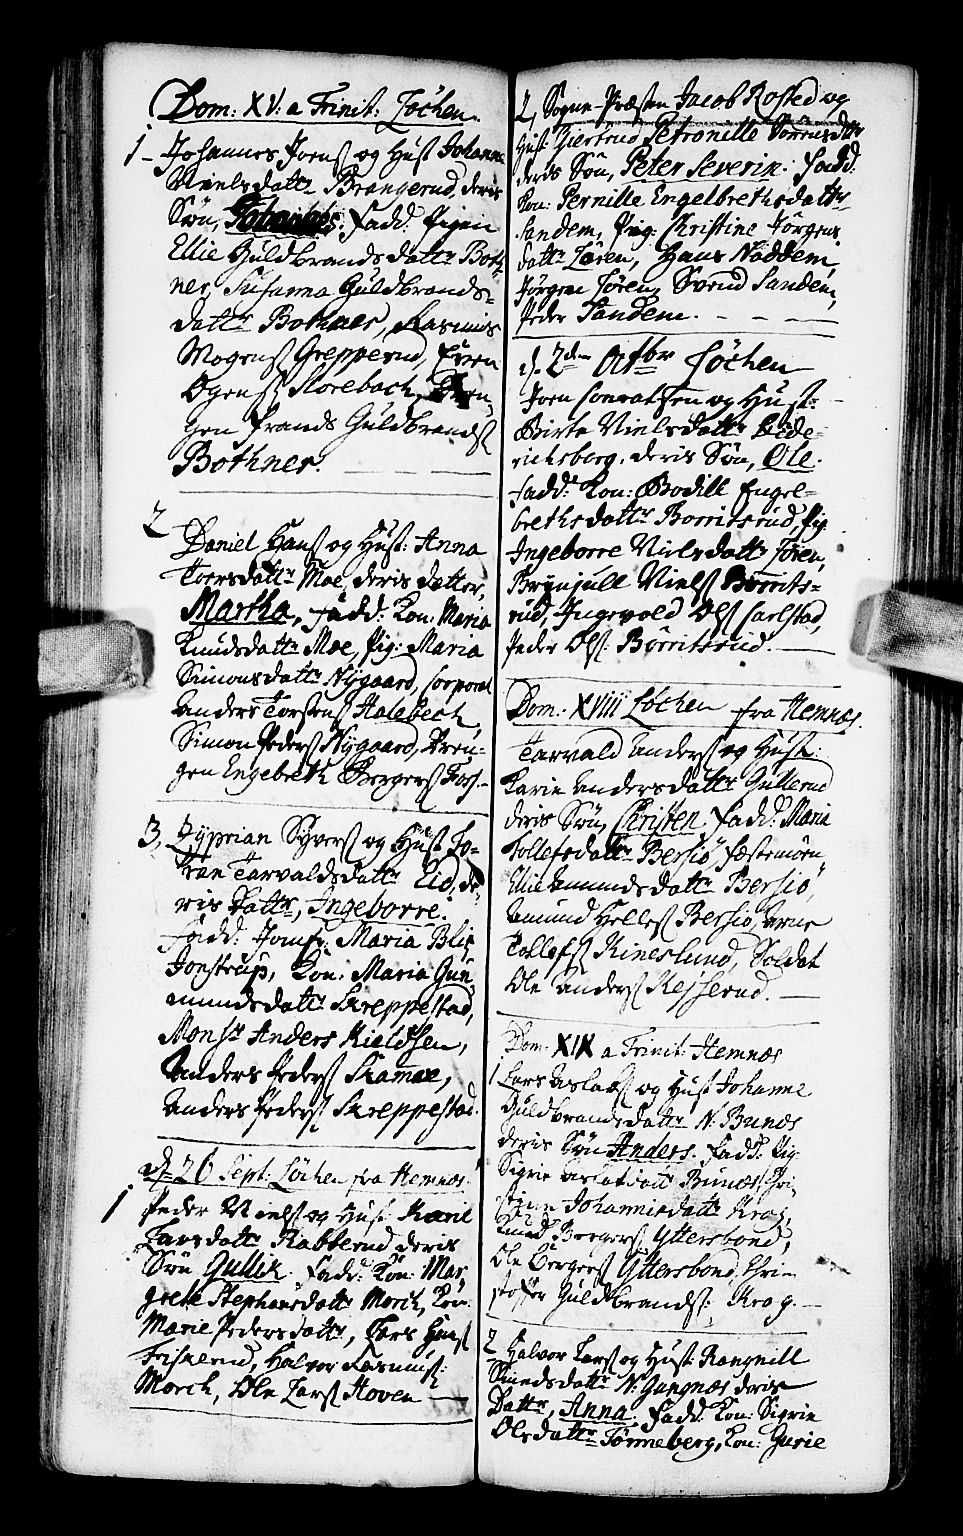 Dom: XV: a Trinit: Løchen.
1 - Johannes Joens og Hust Johanne
Nielsdattr Brangerud, deris
Søn, fadd. Pigen
Ellie Guldbrandsdattr Both
ner, Susanna Guldbrands=
dattr Bothner, Rasmus
Mogens Grepperud, Even
Ogens Storebach, Dren,
gen Frands Guldbrands
Bothner.
2 Daniel Hans og Hust: Anna
Toersdattr Moe, deris datter,
Martha, fadd: Kon: Maria
Knudsdattr Moe, Pig: Maria
Simonsdattr Nygaard, Corporal
Anders Torstens Halebech
Simon Peders Nygaard, Dren=
gen Engebreth Bergers Fors. -
3, Zyprian Syvers og Hust Jo=
ran Tarvaldsdattr Eid, de=
ris Dattr, Ingeborre.
fadd: Jomfr: Maria Blix
Jonstrup, Kon: Maria Gun
mundsdattr Skreppestad,
Monsr Anders Kieldsen,
Anders Peders Kamae,
Anders Peders Skreppestad.
d. 26 Sept: Løchen fra Hemnæs.
1 Peder Niels og Hust Karie
Larsdattr Rabberud deris
Søn Gullik. fadd: Kon: Mar,
grete Stephansdattr Morch, Kon:
Marie Pedersdattr, Lars Hans
Friskerud, Halvor Rasmus:
Morch, Ole Lars Hoven
2, Sogne-Præsten Jacob Rosted og
Hust: Giertrud Petronelle Sørensdattr
deris Søn, Peter Severin: fadd:
Kon: Pernille Engelbrethsdattr
Sandem, Pig: Christine Jørgens
dattr Løren, Hans Naddem,
Jørgen Løren, Svend Sandem,
Peder Sandem. - - -
d. 2den Octbr Løchen
Joen Conratsen og Hust:
Birte Nielsdattr Lide=
richsborg, deris Søn, Ole.
fadd: Kon: Bodill Engel=
brethsdattr Borritsrud, Pig.
Ingeborre Nielsdattr Løren,
Brynjull Niels Børrits=
rud, Ingevold Ols Carlstad,
Peder Ols: Børritsrud. -
Dom: XVIII Løchen fra Hemnæs.
Tarvald Anders og Hust:
Karie Andersdattr Gullerud
deris Søn, Christen. fadd: Maria
Tollefsdattr Bersiø, fæstemøen
Ellie Amundsdattr Bersiø,
Amund Helles Bersiø, Arne
Tollefs Kineslund, Soldat
Ole Anders Rejserud. -
Dom: XIX a Trinit: Hemnæs
1 Lars Aslaks og Hust Johanne
Guldbrandsdattr N: Bunæs
deris Søn Anders. fadd: Pig
Sigrie Aslaksdattr Bunæs, Chri,
stine Johannisdattr Krog,
Knud Bergers Yttersbond,
Ole Bergers Yttersbond, Chri=
stoffer Guldbrands: Krog. -
2 Halvor Lars og Hust Rangnill
Smedsdattr N: Gangnæs deris
Dattr, Anna. fadd: Kon: Sigrie
Olsdattr Tønneberg, Kon: Gurie